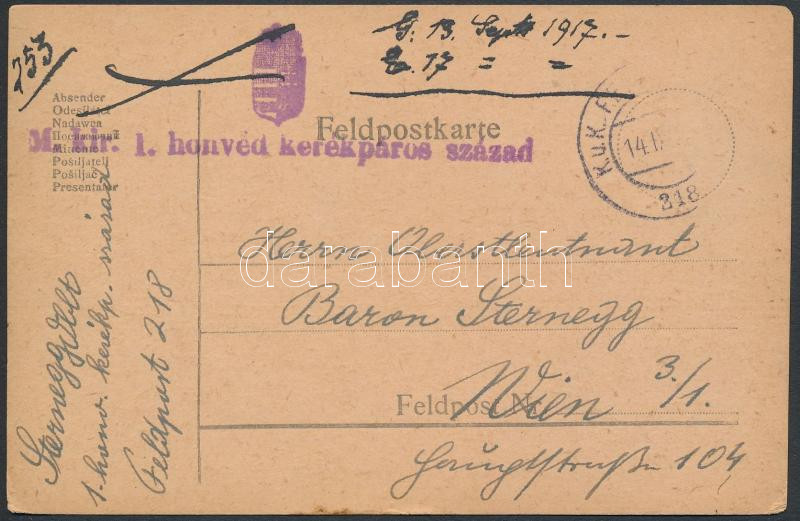 253
G. 13. Sept 1917.-
E. 17 = =
Absender
Odesílatel
Nadawca
Mittente
Pošiljatelj
Pošiljač
Presentator
Feldpostkarte
M. kir. 1. honvéd kerékpáros század
K.u.K. FE
14.I
218
Herrn Oberstleutnant
Baron Sternegg
Wien 3/1.
Feldpost Nr.
Hauptstraße 104
Sternegg
1. honv. kerékp. század
Feldpost 218
darabanth